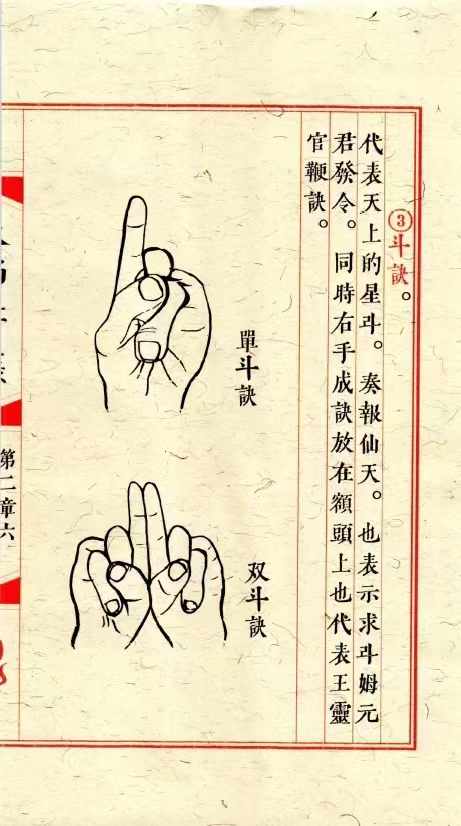 ③斗訣。
代表天上的星斗。奏報仙天。也表示求斗姆元
君發令。同時右手成訣放在額頭上也代表王靈
官鞭訣。
單斗訣
双斗訣
第二章六